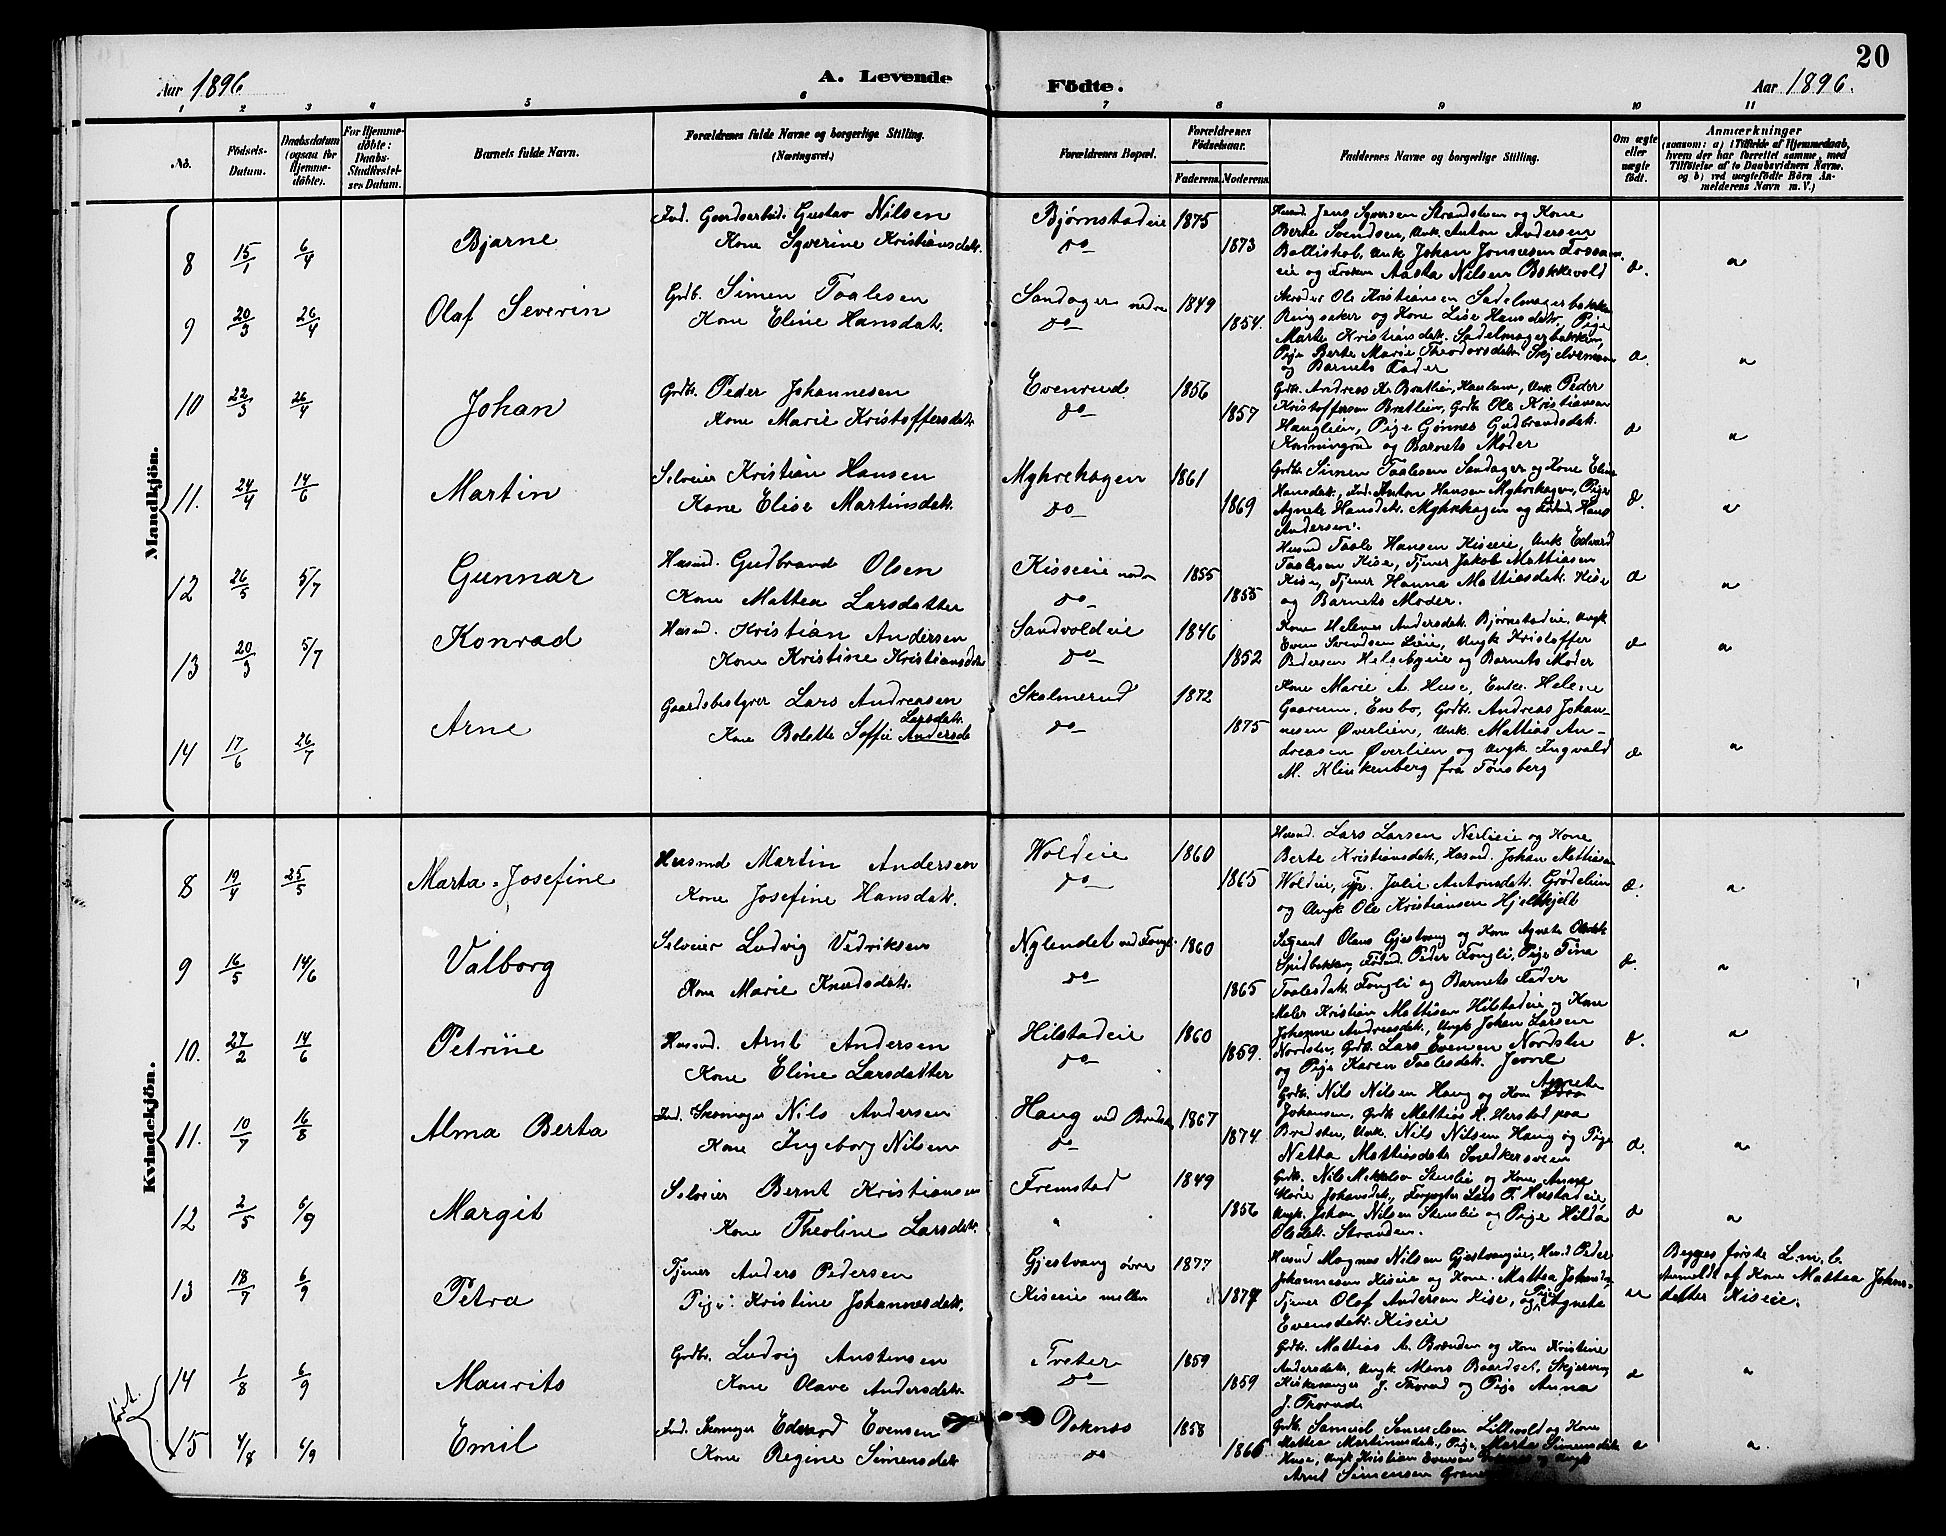 20
Aar 1896. A. Levende Fødte. Aar 1896.
1 2 3 4 5 6 7 8 9 10 11
No. Fødsels-Datum. Daabsdatum (ogsaa for Hjemmedøbte). For Hjemmedøbte: Daabs-Stadfæstelses Datum. Barnets fulde Navn. Forældrenes fulde Navne og borgerlige Stilling. (Næringsvei.) Forældrenes Bopæl. Forældrenes Fødselsaar. Faderens. Moderens. Faddernes Navne og borgerlige Stilling. Om ægte eller uægte født. Anmærkninger (saasom: a) i Tilfælde af Hjemmedaab, hvem der har forrettet samme, med Tilføielse af to Daabsvidners Navne, og b) ved uægtefødte Børn Anmelderens Navn m. V.)
Mandkjön.
8 15/1 6/4 Bjarne
Ind. Gaardsarbeid. Gustav Nilsen
Kone Syverine Kristiansdatr.
Bjørnstadeie
do
1875
1873
Husmd. Jens Syversen Strandstuen og Kone
Berte Svendsen, Unk. Anton Andersen
Ballishol, Unk Johan Jonsesen Fossum-
eie og Frøken Aasta Nilsen Bekkevold
æ. "
9 20/3 26/4 Olaf Severin
Grdb. Simen Taalesen
Kone Eline Hansdatr.
Sandager nedre
do
1849
1854.
Skræder Ole Kristiansen Sadelmagerbakken
Ringsaker og Kone Lise Hansdatr., Pige
Marte Kristiansdatr. Sadelmagerbakken,
Pige Berte Marie Theodorsdatr.
og Barnets Fader
æ. "
10 22/3 26/4 Johan
Grdb. Peder Johannesen
Kone Marie Kristoffersdatr.
Evenrud
do
1856
1857
Grdb. Andreas Kr. Bratlien, Unk. Peder
Kristoffersen Bratlien, Grdb. Ole Kristiansen
Hauglien, Pige Gønnes Gudbrandsdatr.
og Barnets Moder
æ "
11. 24/4 14/6 Martin
Selveier Kristian Hansen
Kone Elise Martinsdatr.
Myhrehagen
do
1861
1869
Grdb. Simen Taalesen Sandager og Kone Eline
Hansdatr., Ind. Anton Hansen Myhrehagen, Pige
Agnete Hansdatr. Myhrehagen og Hans
Andersen.
æ. "
12 26/5 5/7 Gunnar
Husmd. Gudbrand Olsen
Kone Mattea Larsdatter
Kiseeie nedre
do
1855
1855
Husmd Taale Hansen Kiseeie, Unk Edvard
Taalesen Kise, Tjener Jakob Mattiasen
Kise, Tjener Hanna Mattiasdatr. Kise
og Barnets Moder.
æ "
13 20/3 5/7 Konrad
Husmd. Kristian Andersen
Kone Kristine Kristiansdatr
Sandvoldeie
do
1846
1852
Kone Helene Andersdatr. Bjørnstadeie, Ungk
Even Svendsen Lieie, Ungk Kristoffer
Pedersen og Barnets Moder
æ "
14 17/6 26/7 Arne
Gaardsbestyrer Lars Andreasen
Larsdatr.
Kone Bolette Soffie Andersd
Skalmerud
do
1872
1875
Kone Marie A. Huse, Enke Helene
Gaarum, Enebo, Grdb. Andreas Johan-
nesen Øverlien, Unk. Mattias An-
dreasen Øverlien og Ungk Ingvald
M. Klinkenberg fra Tønsberg
æ "
Kvindekjön.
8 19/4 25/5 Marta Josefine
Husmd Martin Andersen
Kone Josefine Hansdatr.
Woldeie
do
1860
1865
Husmd. Lars Larsen Nerlieie og Kone
Berte Kristiansdatr., Husmd. Johan Mattiasen
Woldeie, Julie Antonsdatr. Grødelien
og Ungk Ole Kristiansen
æ. "
9 16/5 14/6 Valborg
Selveier Ludvig Vedriksen
Kone Marie Knudsdatr.
Nylendet ved Fongli
do
1860
1865
Sergeant Olaus Gjestvang og Kone Agnete Olsdatr
Spidbakken, Peder Fongli, Pige Tina
Taalesdatr. Fongli og Barnets Fader
æ. "
10. 27/2 14/6 Petrine
Husmd. Arnt Andersen
Kone Eline Larsdatter
Hilstadeie
do
1860
1859.
Maler Kristian Mattisen Hilstadeie og Kone
Johanne Andreasdatr., Ungk Johan Larsen
Nordsten, Grdb. Lars Evensen Nordsten
og Pige Karen Taalesdatr.
æ. "
11. 10/7 16/8 Alma Berta
Ind. Skomager Nils Andersen
Kone Ingeborg Nilsen
Haug ved
do
1867
1874.
Agnete
Grdb. Nils Nilsen Haug og Kone
Johansen, Grdb. Mattias H. Herstad paa
Bredsten, Unk. Nils Nilsen Haug og Pige
Netta Mattiasdatr. Snedkersveen
æ. "
12 2/5 6/9 Margit
Selveier Bernt Kristiansen
Kone Theoline Larsdatr.
Fremstad
"
1849
1856
Grdb. Nils Stenslie og Kone Anne
Marie Johansdatr., Forpagter Lars
Ungk. Johan Nilsen Stenslie og Pige Hilda
Olsdatr. Stranden.
æ "
13 18/7 6/9 Petra
Tjener Anders Pedersen
Pige: Kristine Johannesdatr.
Gjestvang øvre
Kiseeie mellem
1877
1877
Husmd Magnus Nilsen Gjestvangeie, Husmd Peder
Johannesen Kiseeie og Kone Mattea
Tjener Olaf Andersen Kise, og Pige Agneta
Evensdatr. Kiseeie
u
Begges første L.m., b.
Anmeldt af Kone Mattea Johans-
datter Kiseeie.
14 1/8 6/9 Maurits
Grdbr. Ludvig Austensen
Kone Olave Andersdatr.
Tveter
do
1859
1859
Grdb. Mattias A. Brænden og Kone Kristine
Andersdatr., Ungk Mons Baardset,
Kirkesanger J. Thorud og Pige Anna
J. Thorud.
æ "
15 4/8 6/9 Emil
Ind. Skomager Edvard Evensen
Kone Regine Simensdatr.
Doknes
do
1858
1866
Grdb. Samuel Samuelsen Lillevold og Kone
Mattea Martinusdatr., Pige Marta Simensdatr.
Huse, Ungk Kristian Evensen og Ungk
Arnt Simensen
æ "